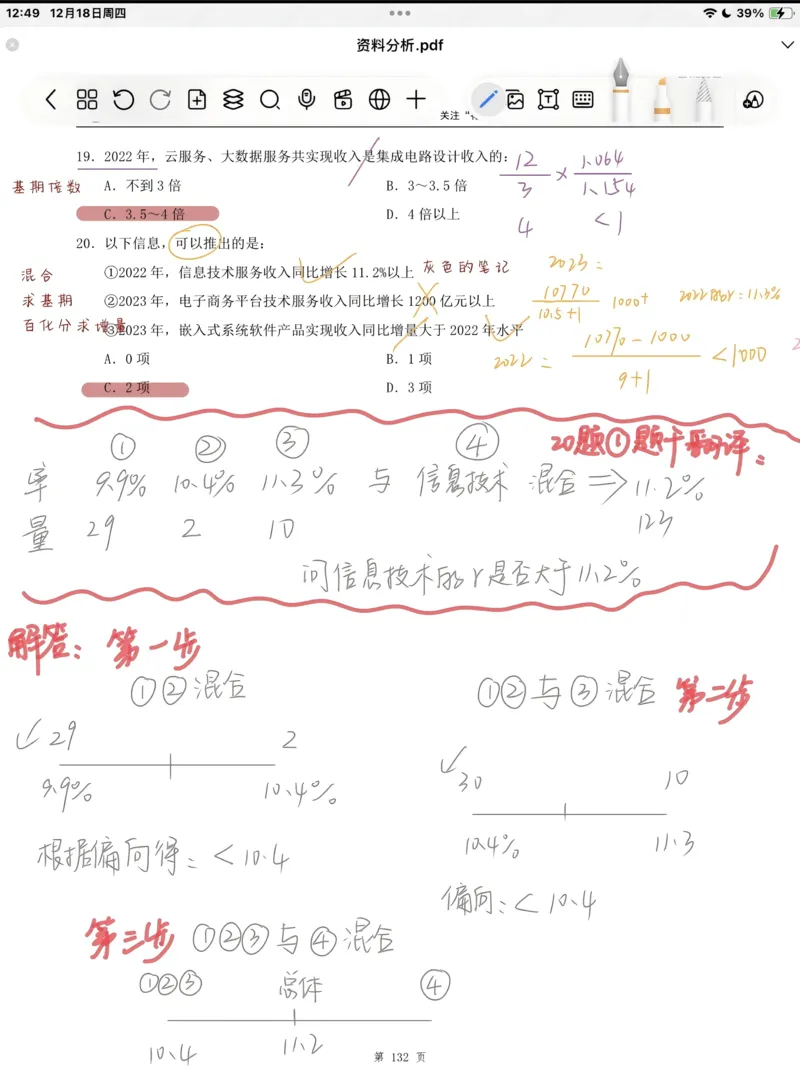 12:49 12月18日周四
39%
资料分析.pdf
关注
19. 2022 年，云服务、大数据服务共实现收入是集成电路设计收入的：
基期倍数
A. 不到 3 倍
B. 3～3.5 倍
C. 3.5～4 倍
D. 4 倍以上
12/3 × 1.064/1.154
4 <1
20. 以下信息，可以推出的是：
混合
①2022 年，信息技术服务收入同比增长 11.2%以上
灰色的笔记
求基期
②2023 年，电子商务平台技术服务收入同比增长 1200 亿元以上
百化分求增量
③2023 年，嵌入式系统软件产品实现收入同比增量大于 2022 年水平
A. 0 项
B. 1 项
C. 2 项
D. 3 项
2023 =
10770/10.5+1 1000+ 2022的r=11.3%
2022 = 10770-1000/9+1 <1000
20题①题干翻译：
① ② ③ ④
率 9.9% 10.4% 11.3% 与 信息技术 混合 ⇒ 11.2%
量 29 2 10 123
问信息技术的r是否大于11.2%
解答：第一步
①②混合
29 2
9.9% 10.4%
根据偏向得：<10.4
①②与③混合 第二步
30 10
10.4% 11.3
偏向：<10.4
第三步 ①②③与④混合
①②③ 总体 ④
10.4 11.2
第 132 页